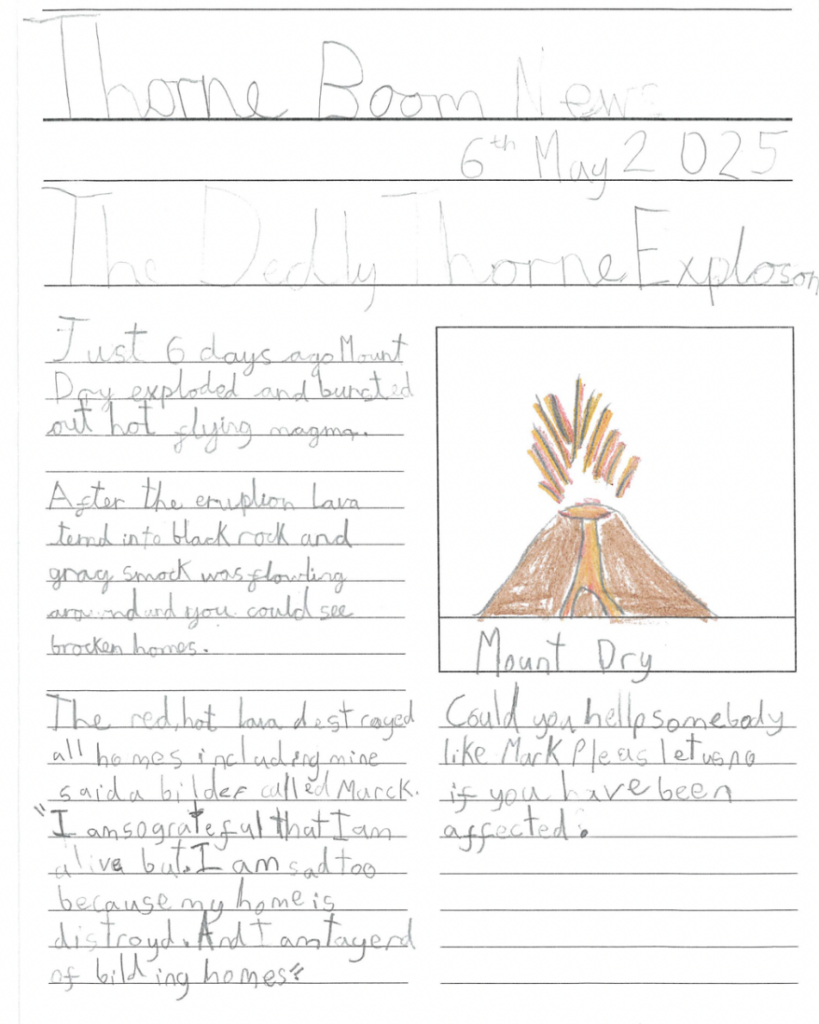 Thorne Boom News
6th May 2025
The Dedly Thorne Exploson
Just 6 days ago Mount
Dry exploded and bursted
out hot flying magma.
After the eruption Lava
ternd into black rock and
gray smock was flowling
around and you could see
brocken homes.
The red, hot lava destroyed
all homes including mine
said a bilder called Marck.
"I am so grateful that I am
alive but. I am sad too
because my home is
distroyd. And I am tayerd
of bilding homes"
Mount Dry
Could you hellp somebody
like Mark Pleas let us no
if you have been
affected.